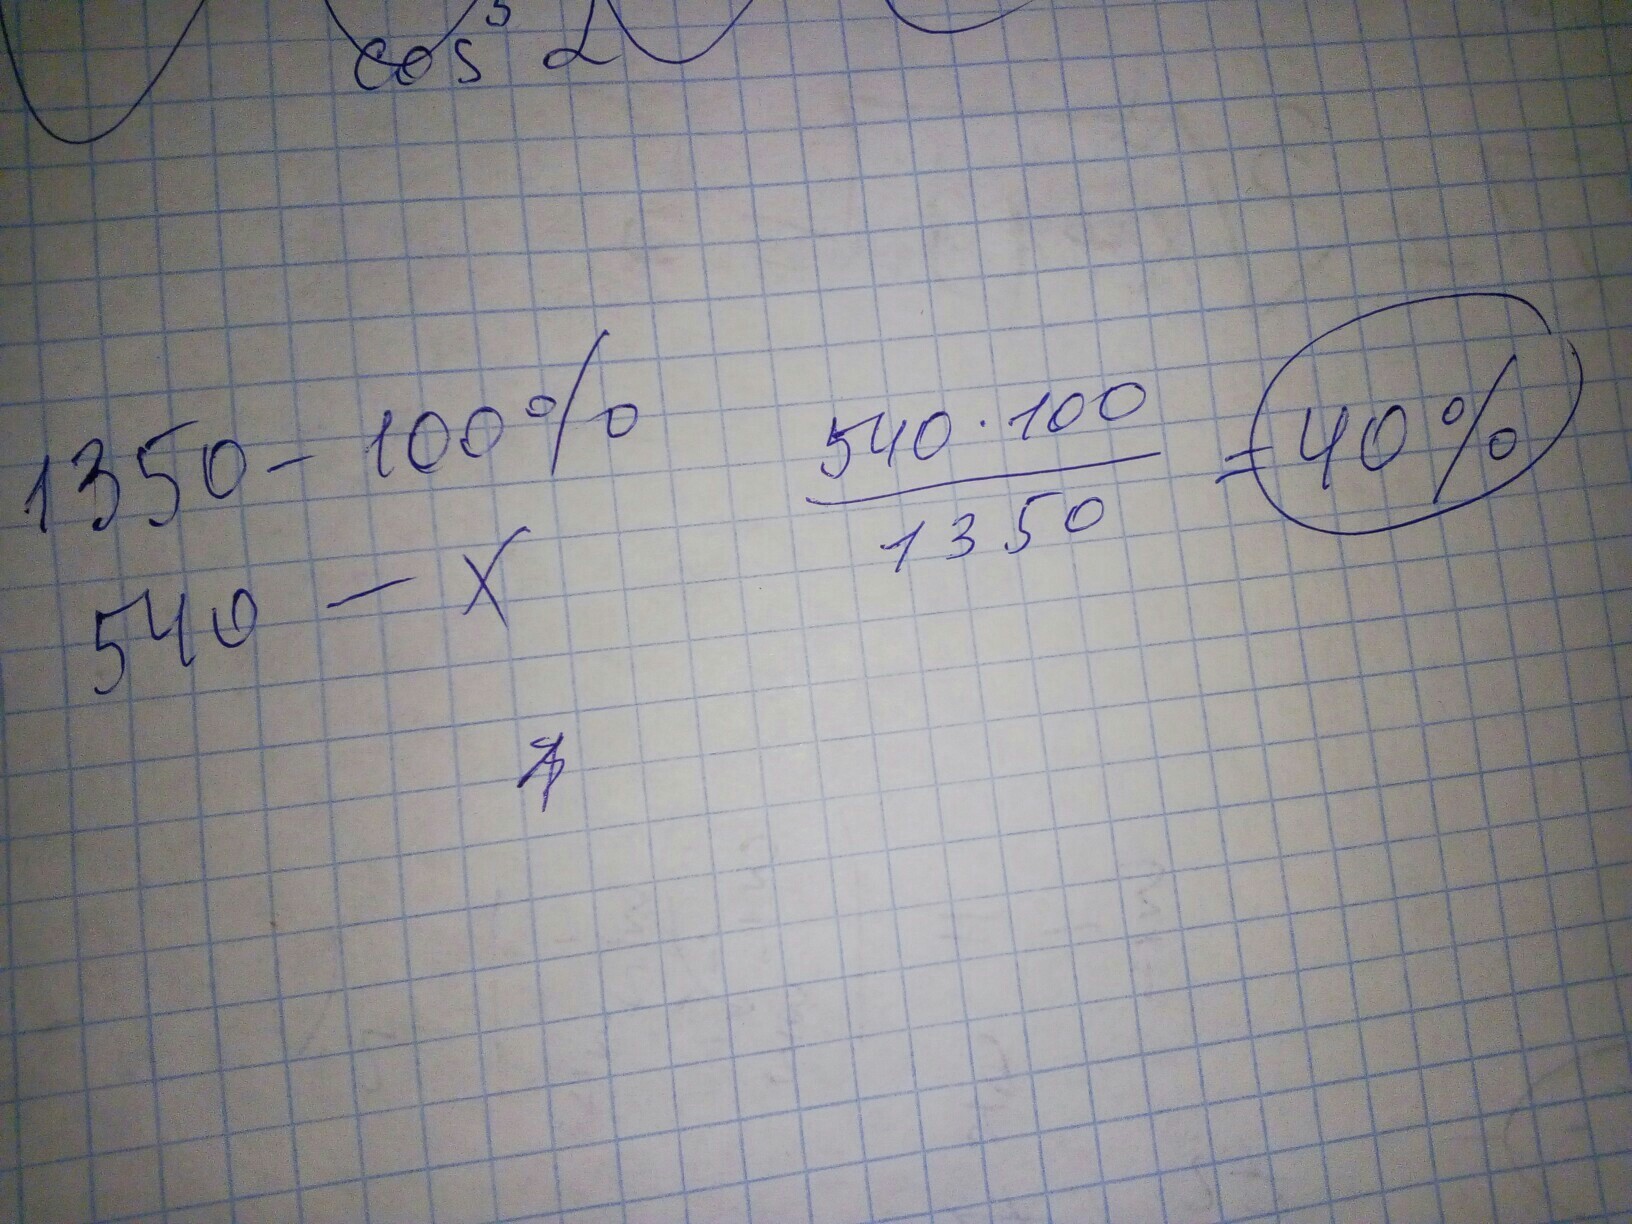 cos α
1350 - 100%
540 - x
540 · 100
1350
= 40%